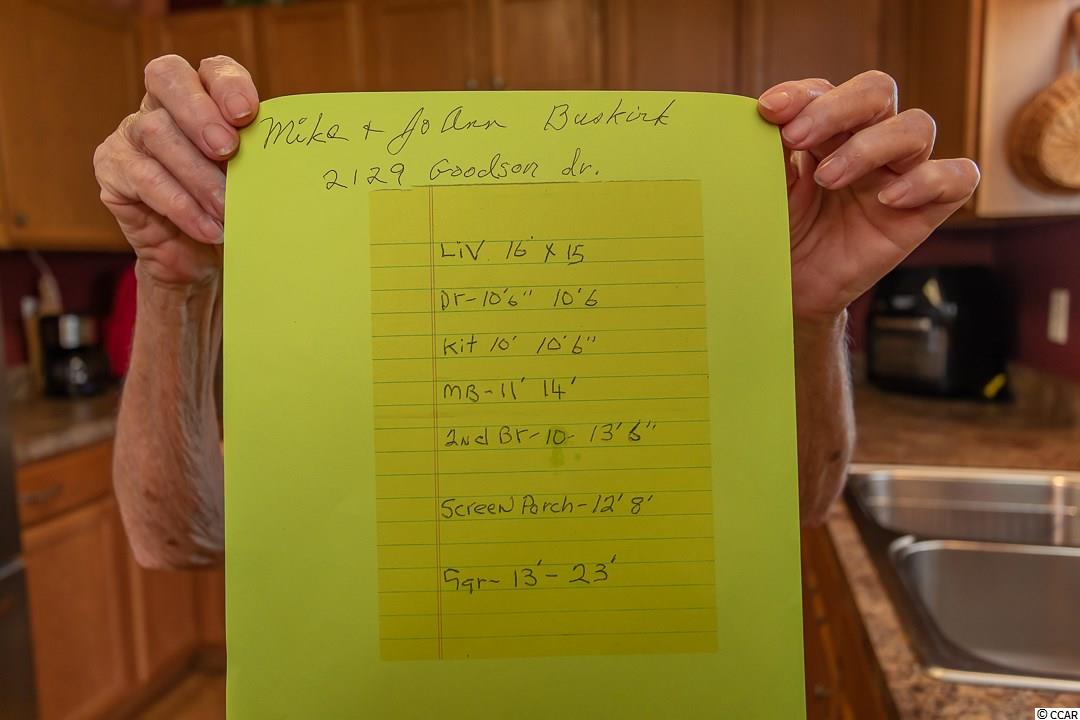 Mike + Jo Ann Buskirk
2129 Goodson dr.
Liv. 16' X 15
Dr-10'6" 10'6
Kit 10' 10'6"
MB-11' 14'
2nd Br-10- 13'6"
Screen Porch-12' 8'
Gar- 13'- 23'
© CCAR